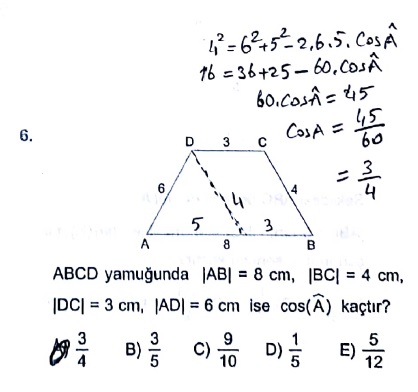 4² = 6² + 5² - 2.6.5.CosÂ
16 = 36 + 25 - 60.CosÂ
60.CosÂ = 45
CosA = 45/60
= 3/4
6.
D 3 C
6 4 4
5 3
A 8 B
ABCD yamuğunda |AB| = 8 cm, |BC| = 4 cm,
|DC| = 3 cm, |AD| = 6 cm ise cos(Â) kaçtır?
A) 3/4 B) 3/5 C) 9/10 D) 1/5 E) 5/12